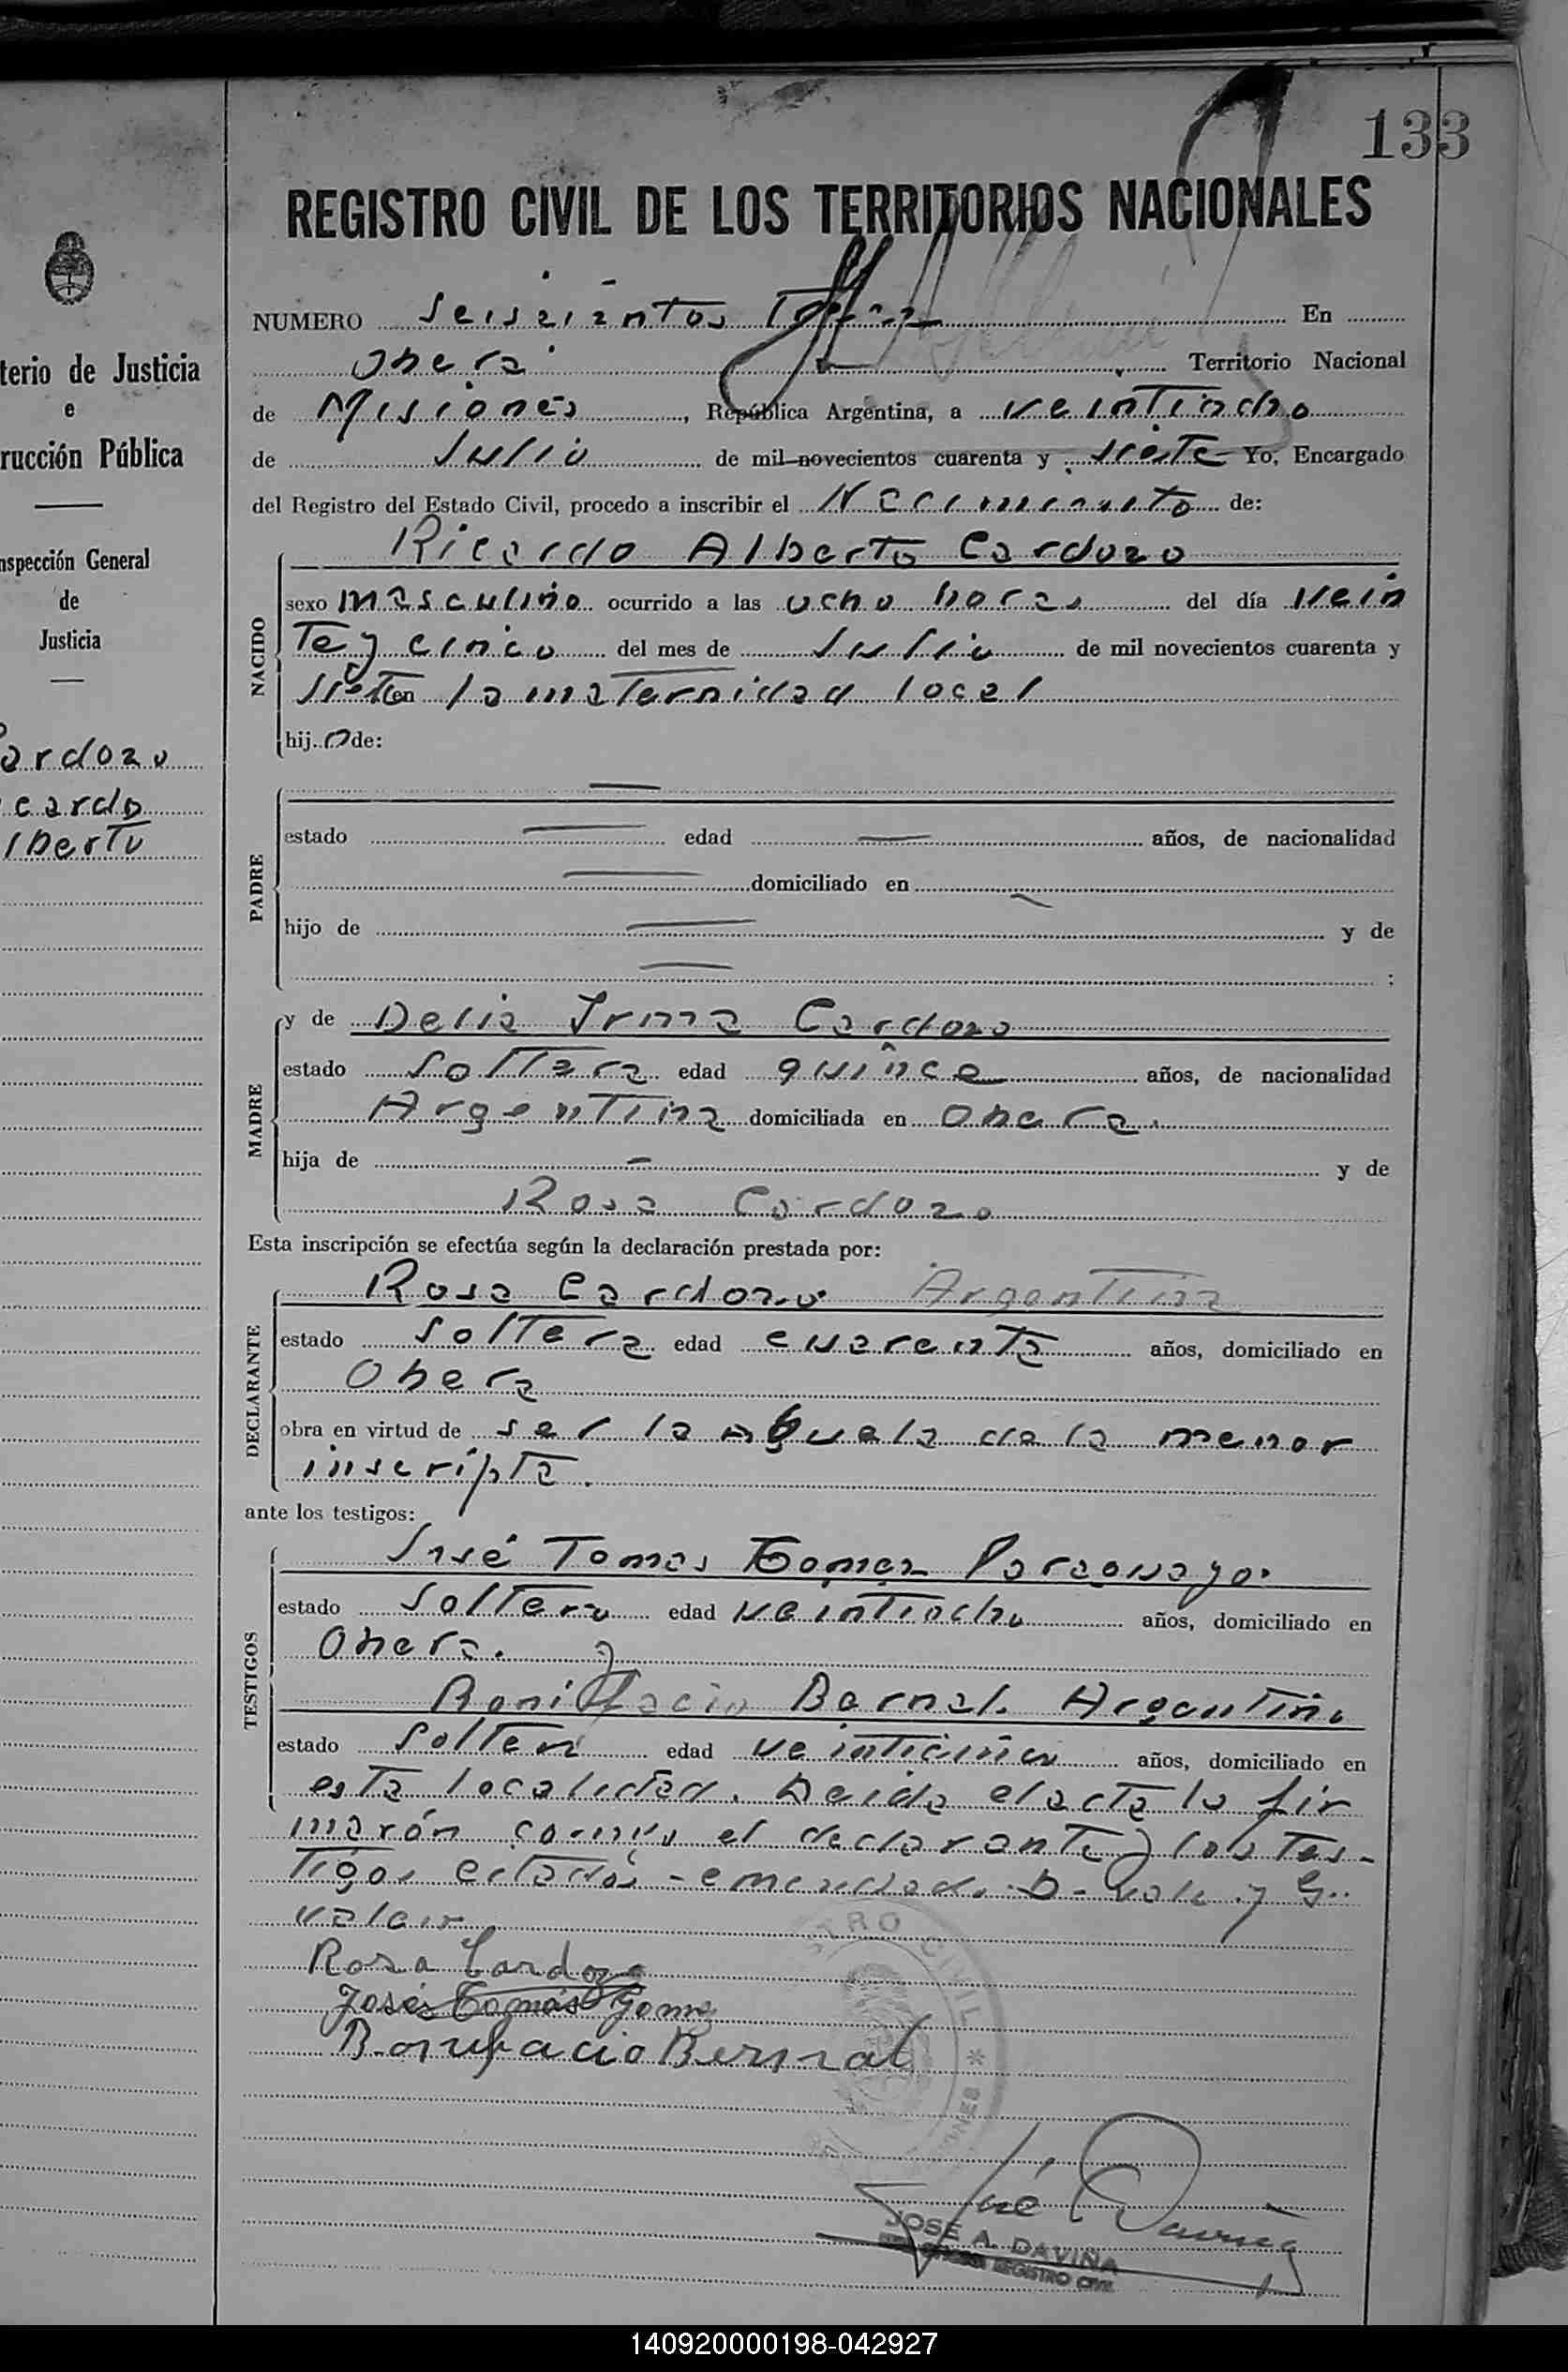 133
REGISTRO CIVIL DE LOS TERRITORIOS NACIONALES
NUMERO Seiscientos En
Oberá Territorio Nacional
de Misiones, República Argentina, a veintiocho
de Julio de mil novecientos cuarenta y siete Yo, Encargado
del Registro del Estado Civil, procedo a inscribir el Nacimiento de:
NACIDO
Ricardo Alberto Cardozo
sexo masculino ocurrido a las ocho horas del día vein
te y cinco del mes de Julio de mil novecientos cuarenta y
siete en la maternidad local
hij o de:
PADRE
estado edad años, de nacionalidad
domiciliado en
hijo de y de
;
MADRE
y de Delia Irma Cardozo
estado Soltera edad quince años, de nacionalidad
Argentina domiciliada en Obera.
hija de y de
Rosa Cardozo
Esta inscripción se efectúa según la declaración prestada por:
DECLARANTE
Rosa Cardozo. Argentina
estado Soltera edad cuarenta años, domiciliado en
Obera
obra en virtud de ser la abuela de la menor
inscripta.
ante los testigos:
TESTIGOS
José Tomas Gomez Paraguayo.
estado Soltero edad veintiocho años, domiciliado en
Obera. y
Bonifacio Bernal. Argentino
estado Soltero edad veinticinco años, domiciliado en
esta localidad. Leida el acta la fir
marón conmigo el declarante y los tes-
tigos citados - emendado. b - vale. y G..
valeir
Rosa Cardozo
José Tomás Gomez
Bonifacio Bernal
REGISTRO CIVIL *
José Daviña
JOSE A. DAVIÑA
REGISTRO CIVIL
terio de Justicia
e
rucción Pública
nspección General
de
Justicia
ardozo
cardo
lberto
140920000198-042927